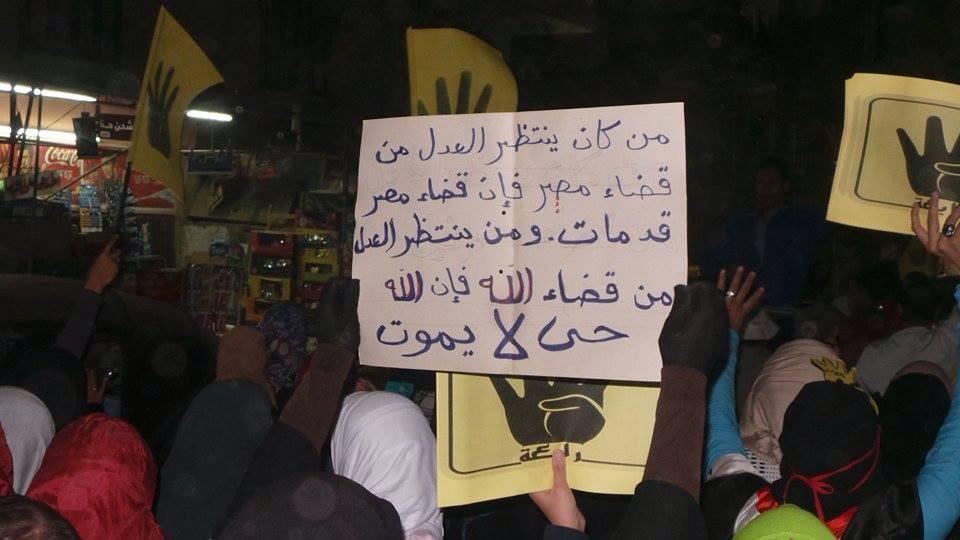 من كان ينتظر العدل من
قضاء مصر فإن قضاء مصر
قد مات. ومن ينتظر العدل
من قضاء الله فإن الله
حى لا يموت
رابعة
Coca-Cola
شحن هنا